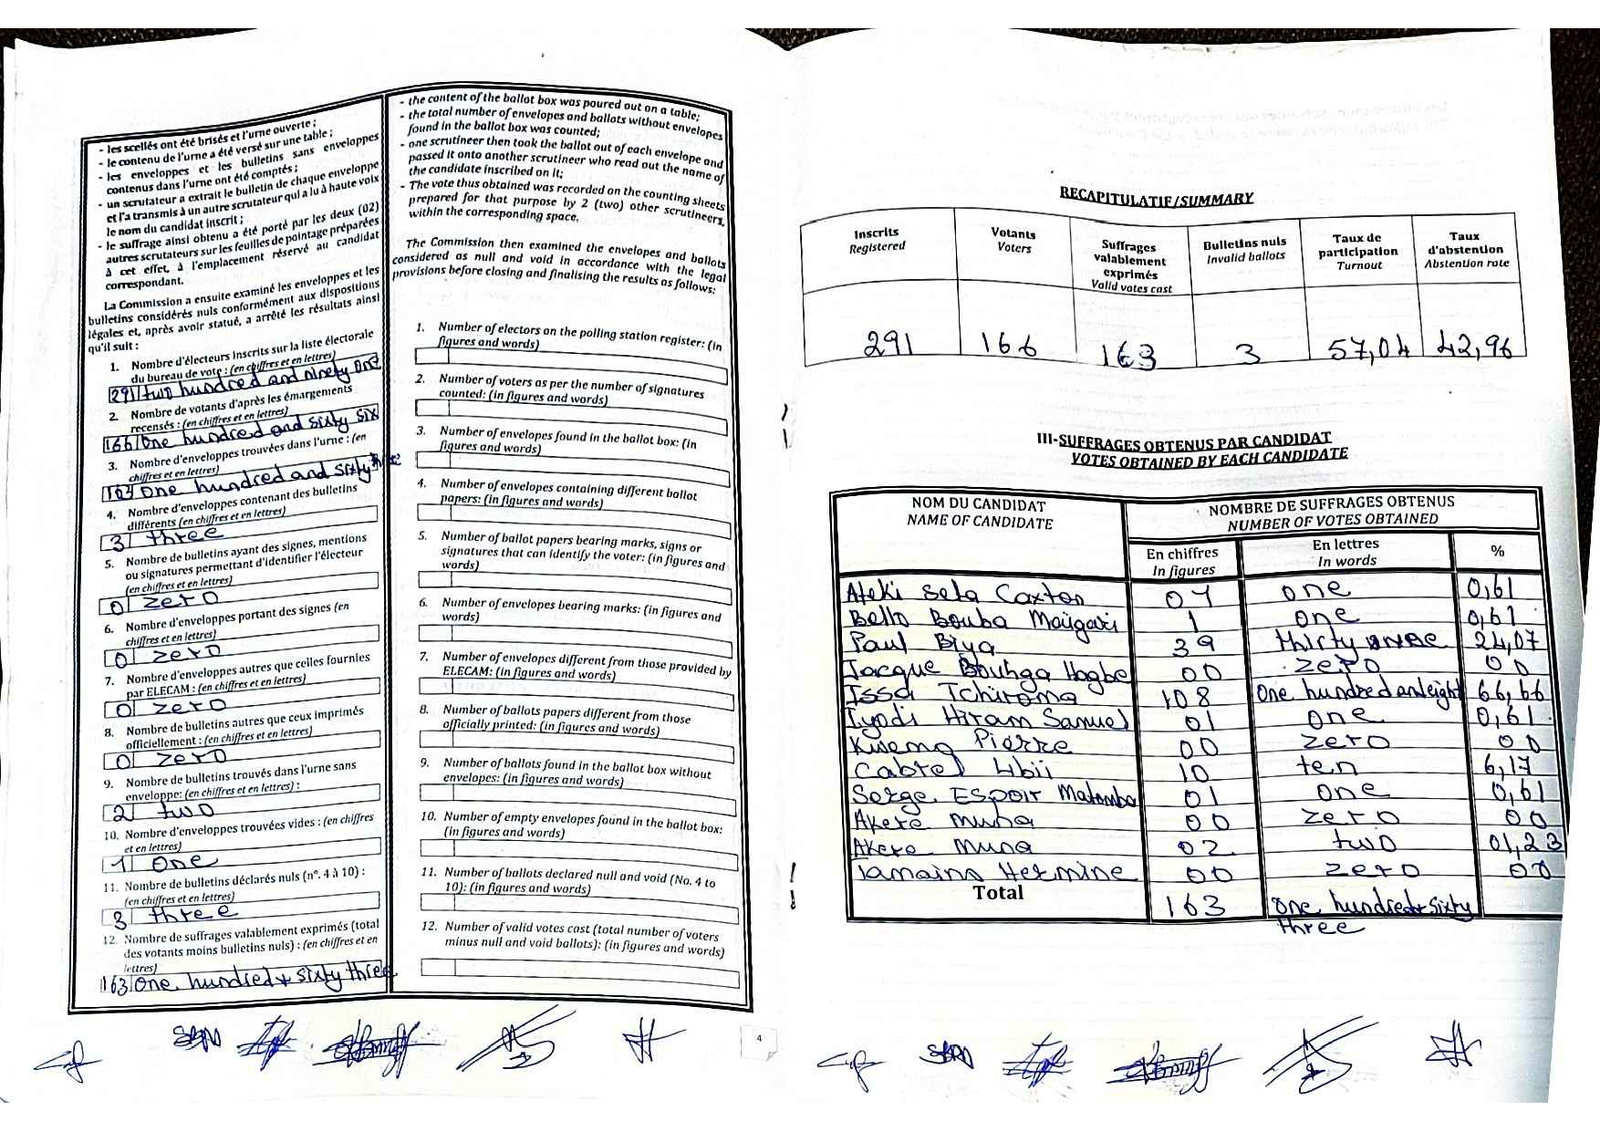 - les scellés ont été brisés et l'urne ouverte ;
- le contenu de l'urne a été versé sur une table ;
- les enveloppes et les bulletins sans enveloppes
contenus dans l'urne ont été comptés ;
- un scrutateur a extrait le bulletin de chaque enveloppe
et l'a transmis à un autre scrutateur qui a lu à haute voix
le nom du candidat inscrit ;
- le suffrage ainsi obtenu a été porté par les deux (02)
autres scrutateurs sur les feuilles de pointage préparées
à cet effet, à l'emplacement réservé au candidat
correspondant.
La Commission a ensuite examiné les enveloppes et les
bulletins considérés nuls conformément aux dispositions
légales et, après avoir statué, a arrêté les résultats ainsi
qu'il suit :
1. Nombre d'électeurs inscrits sur la liste électorale
du bureau de vote : (en chiffres et en lettres)
291 two hundred and ninety one
2. Nombre de votants d'après les émargements
recensés : (en chiffres et en lettres)
166 One hundred and sixty six
3. Nombre d'enveloppes trouvées dans l'urne : (en
chiffres et en lettres)
One hundred and sixty
4. Nombre d'enveloppes contenant des bulletins
différents (en chiffres et en lettres)
3 three
5. Nombre de bulletins ayant des signes, mentions
ou signatures permettant d'identifier l'électeur
(en chiffres et en lettres)
0 zero
6. Nombre d'enveloppes portant des signes (en
chiffres et en lettres)
0 zero
7. Nombre d'enveloppes autres que celles fournies
par ELECAM : (en chiffres et en lettres)
0 zero
8. Nombre de bulletins autres que ceux imprimés
officiellement : (en chiffres et en lettres)
0 zero
9. Nombre de bulletins trouvés dans l'urne sans
enveloppe: (en chiffres et en lettres) :
2 two
10. Nombre d'enveloppes trouvées vides : (en chiffres
et en lettres)
1 One
11. Nombre de bulletins déclarés nuls (n°. 4 à 10) :
(en chiffres et en lettres)
3 three
12. Nombre de suffrages valablement exprimés (total
des votants moins bulletins nuls) : (en chiffres et en
lettres)
163 One hundred + sixty three
- the content of the ballot box was poured out on a table;
- the total number of envelopes and ballots without envelopes
found in the ballot box was counted;
- one scrutineer then took the ballot out of each envelope and
passed it onto another scrutineer who read out the name of
the candidate inscribed on it;
- The vote thus obtained was recorded on the counting sheets
prepared for that purpose by 2 (two) other scrutineers,
within the corresponding space.
The Commission then examined the envelopes and ballots
considered as null and void in accordance with the legal
provisions before closing and finalising the results as follows:
1. Number of electors on the polling station register: (in
figures and words)
2. Number of voters as per the number of signatures
counted: (in figures and words)
3. Number of envelopes found in the ballot box: (in
figures and words)
4. Number of envelopes containing different ballot
papers: (in figures and words)
5. Number of ballot papers bearing marks, signs or
signatures that can identify the voter: (in figures and
words)
6. Number of envelopes bearing marks: (in figures and
words)
7. Number of envelopes different from those provided by
ELECAM: (in figures and words)
8. Number of ballots papers different from those
officially printed: (in figures and words)
9. Number of ballots found in the ballot box without
envelopes: (in figures and words)
10. Number of empty envelopes found in the ballot box:
(in figures and words)
11. Number of ballots declared null and void (No. 4 to
10): (in figures and words)
12. Number of valid votes cast (total number of voters
minus null and void ballots): (in figures and words)
4
RECAPITULATIF/SUMMARY
Inscrits
Registered
Votants
Voters
Suffrages
valablement
exprimés
Valid votes cast
Bulletins nuls
Invalid ballots
Taux de
participation
Turnout
Taux
d'abstention
Abstention rate
291 166 163 3 57,04 42,96
III-SUFFRAGES OBTENUS PAR CANDIDAT
VOTES OBTAINED BY EACH CANDIDATE
NOM DU CANDIDAT
NAME OF CANDIDATE
NOMBRE DE SUFFRAGES OBTENUS
NUMBER OF VOTES OBTAINED
En chiffres
In figures
En lettres
In words
%
Ateki Seta Caxton 01 one 0,61
Bello Bouba Maïgari 1 one 0,61
Paul Biya 39 thirty nine 24,07
Jacque Bouhga Hagbe 00 zero 00
Issa Tchiroma 108 One hundred and eight 66,66
Iyodi Hiram Samuel 01 one 0,61
Kwemo Pierre 00 zero 00
Cabrel Libii 10 ten 6,17
Serge ESPOIR Matomba 01 one 0,61
Akere Muna 00 zero 00
Akere Muna 02 two 01,23
Tamaino Hermine 00 zero 00
Total 163 One hundred + sixty
three